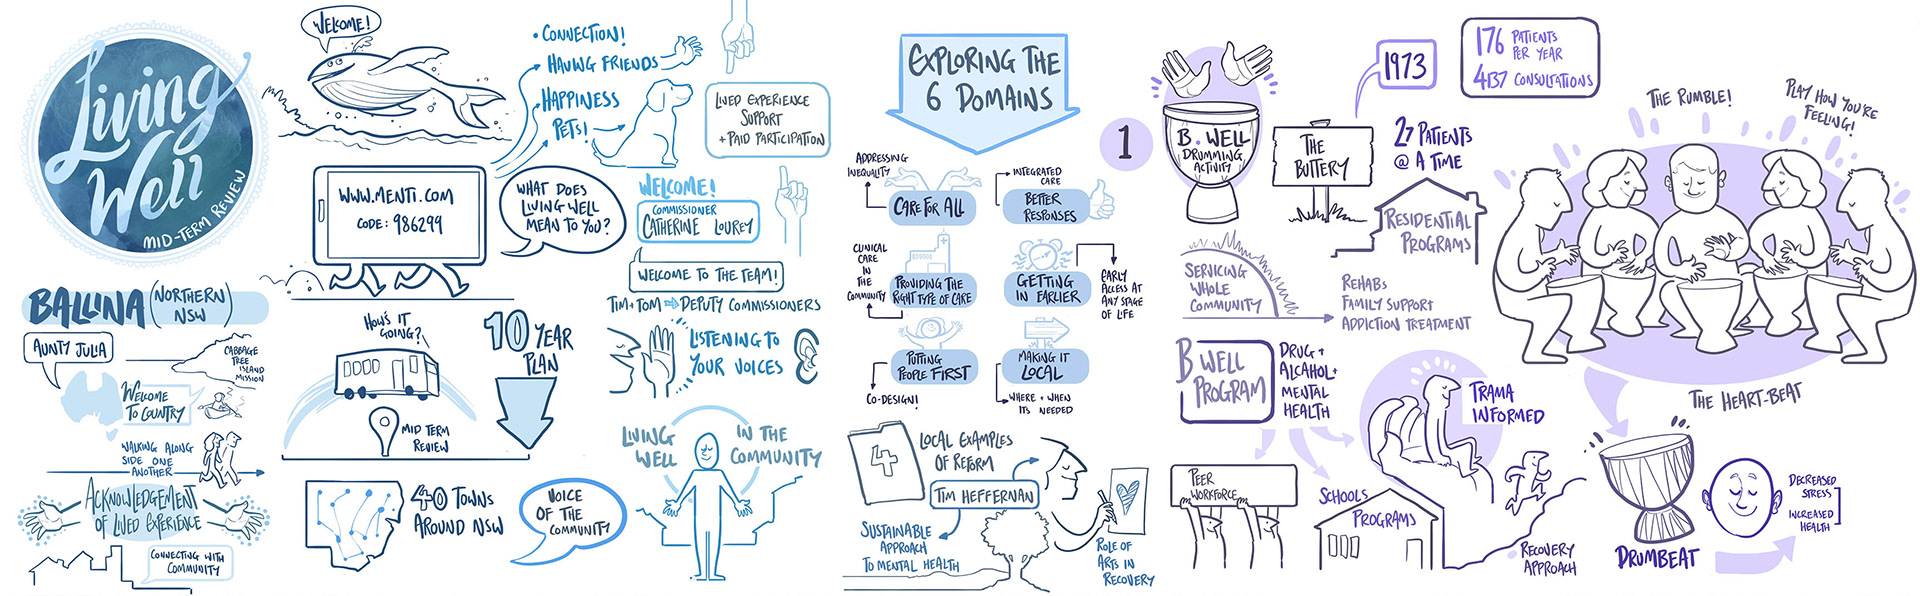 Living
Well
MID-TERM REVIEW
BALLINA (NORTHERN
NSW)
AUNTY JULIA
CABBAGE
TREE
ISLAND
MISSION
WELCOME
TO COUNTRY
WALKING ALONG
SIDE ONE
ANOTHER
ACKNOWLEDGEMENT
OF LIVED EXPERIENCE
CONNECTING WITH
COMMUNITY
WELCOME!
• CONNECTION!
HAVING FRIENDS
HAPPINESS
PETS!
LIVED EXPERIENCE
SUPPORT
+ PAID PARTICIPATION
WWW.MENTI.COM
CODE: 986299
WHAT DOES
LIVING WELL
MEAN TO YOU?
WELCOME!
COMMISSIONER
CATHERINE LOUREY
WELCOME TO THE TEAM!
TIM + TOM → DEPUTY COMMISSIONERS
HOW'S IT
GOING?
10 YEAR
PLAN
MID TERM
REVIEW
LISTENING TO
YOUR VOICES
40 TOWNS
AROUND NSW
VOICE
OF THE
COMMUNITY
LIVING
WELL
IN THE
COMMUNITY
EXPLORING THE
6 DOMAINS
ADDRESSING
INEQUALITY
CARE FOR ALL
INTEGRATED
CARE
BETTER
RESPONSES
CLINICAL
CARE
IN
THE
COMMUNITY
PROVIDING THE
RIGHT TYPE OF CARE
GETTING
IN EARLIER
EARLY
ACCESS AT
ANY STAGE
OF LIFE
PUTTING
PEOPLE FIRST
CO-DESIGN!
MAKING IT
LOCAL
WHERE + WHEN
ITS NEEDED
4
LOCAL EXAMPLES
OF REFORM
TIM HEFFERNAN
SUSTAINABLE
APPROACH
TO MENTAL HEALTH
ROLE OF
ARTS IN
RECOVERY
1
B.WELL
DRUMMING
ACTIVITY
THE
BUTTERY
1973
176 PATIENTS
PER YEAR
4137 CONSULTATIONS
27 PATIENTS
@ A TIME
RESIDENTIAL
PROGRAMS
SERVICING
WHOLE
COMMUNITY
REHABS
FAMILY SUPPORT
ADDICTION TREATMENT
B WELL
PROGRAM
DRUG +
ALCOHOL +
MENTAL
HEALTH
TRAMA
INFORMED
PEER
WORKFORCE
SCHOOLS
PROGRAMS
RECOVERY
APPROACH
THE RUMBLE!
PLAY HOW YOU'RE
FEELING!
THE HEART-BEAT
DRUMBEAT
DECREASED
STRESS
INCREASED
HEALTH